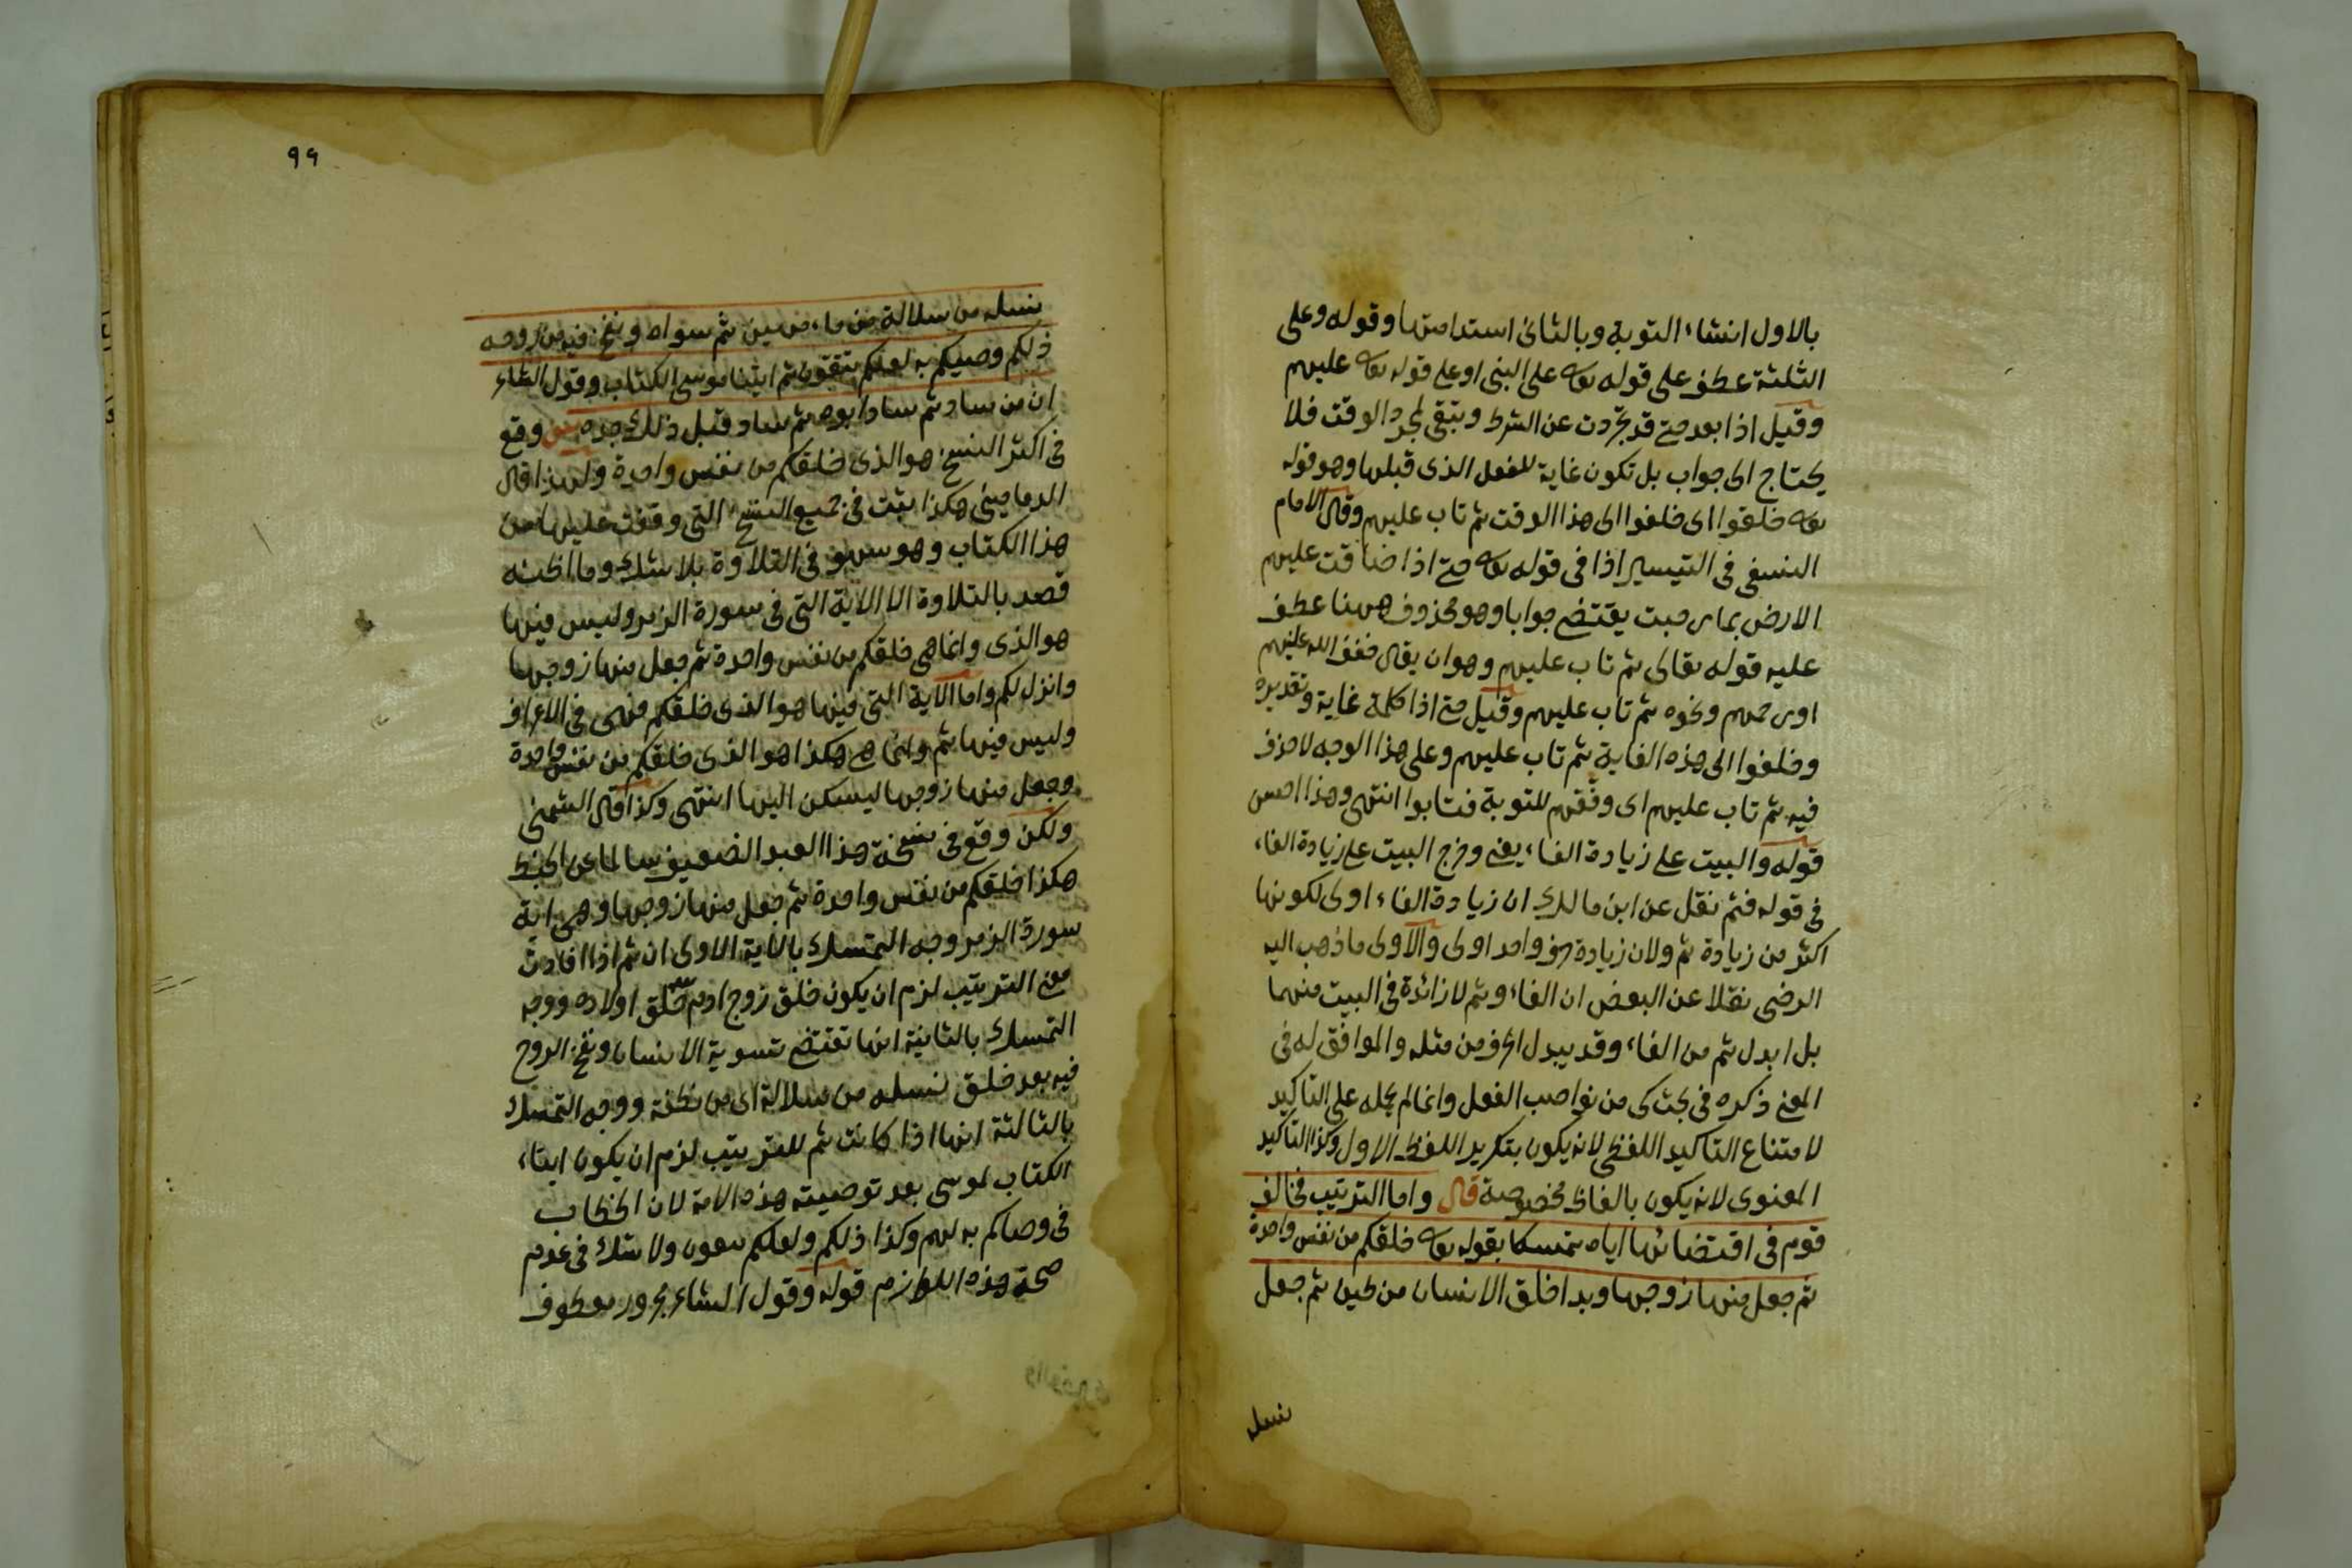 بالاول انشاء التوبة وبالثانى استدامتها وقوله وعلى
الثلثة عطف على قوله تعه على النبى او على قوله تعه عليهم
وقيل اذا بعد حتى قد تجردت عن الشرط وتبقى لمجرد الوقت فلا
يحتاج الى جواب بل تكون غاية للفعل الذى قبلها وهو قوله
تعه خلفوا اى خلفوا الى هذا الوقت ثم تاب عليهم وقال الامام
النسفى فى التيسير اذا فى قوله تعه حتى اذا ضاقت عليهم
الارض بما رحبت يقتضى جوابا وهو محذوف ههنا عطف
عليه قوله تعالى ثم تاب عليهم وهو ان يقال فغفر الله عليهم
او رحمهم ونحوه ثم تاب عليهم وقيل حتى اذا كلمة غاية وتقديره
وخلفوا الى هذه الغاية ثم تاب عليهم وعلى هذا الوجه لا حذف
فيه ثم تاب عليهم اى وفقهم للتوبة فتابوا انتهى وهذا احسن
قوله والبيت على زيادة الفاء يعنى وخرج البيت على زيادة الفاء
فى قوله فثم نقل عن ابن مالك ان زيادة الفاء اولى لكونها
اكثر من زيادة ثم ولان زيادة حرف واحد اولى والاولى ما ذهب اليه
الرضى نقلا عن البعض ان الفاء وثم لا زائدة فى البيت منهما
بل ابدل ثم من الفاء وقد يبدل الحرف من مثله والموافق له فى
المعنى ذكره فى بحث كى من نواصب الفعل وانما لم يحمله على التاكيد
لامتناع التاكيد اللفظى لانه يكون بتكرير اللفظ الاول وكذا التاكيد
المعنوى لانه يكون بالفاظ مخصوصة قال واما الترتيب فخالف
قوم فى اقتضائها اياه تمسكا بقوله تعه خلقكم من نفس واحدة
ثم جعل منها زوجها وبدا خلق الانسان من طين ثم جعل
نسله
٩٩
نسله من سلالة من ماء مهين ثم سواه ونفخ فيه من روحه
ذلكم وصيكم به لعلكم تتقون ثم اتينا موسى الكتاب وقول الشاعر
ان من ساد ثم ساد ابوه ثم ساد قبل ذلك جده وقع
فى اكثر النسخ هو الذى خلقكم من نفس واحدة ولهذا قال
الدمامينى هكذا ثبت فى جميع النسخ التى وقفت عليها من
هذا الكتاب وهو سهو فى التلاوة بلا شك وما اظنه
قصد بالتلاوة الا الاية التى فى سورة الزمر وليس فيها
هو الذى وانما هى خلقكم من نفس واحدة ثم جعل منها زوجها
وانزل لكم واما الاية التى فيها هو الذى خلقكم فهى فى الاعراف
وليس فيها ثم وانما هى هكذا هو الذى خلقكم من نفس واحدة
وجعل منها زوجها ليسكن اليها انتهى وكذا قال الشمنى
ولكن وقع فى نسخة هذا العبد الضعيف سالما عن الخبط
هكذا خلقكم من نفس واحدة ثم جعل منها زوجها وهى اية
سورة الزمر وجه التمسك بالاية الاولى ان ثم اذا افادت
معنى الترتيب لزم ان يكون خلق زوج ادم خلق اولاده ووجه
التمسك بالثانية انها تقتضى تسوية الانسان ونفخ الروح
فيه بعد خلق نسله من سلالة اى من نطفة ووجه التمسك
بالثالثة انها اذا كانت ثم للترتيب لزم ان يكون ايتاء
الكتاب لموسى بعد توصيته هذه الامة لان الخطاب
فى وصاكم به لهم وكذا ذلكم ولعلكم تتقون ولا شك فى عدم
صحة هذه اللوازم قوله وقول الشاعر مجرور معطوف